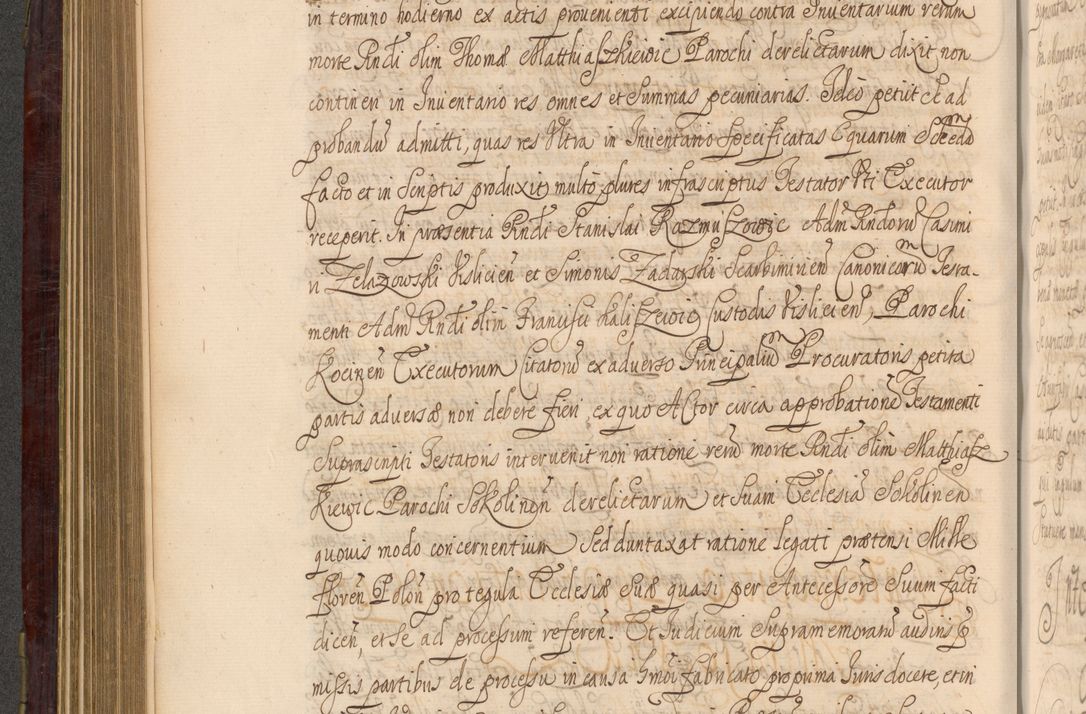 in termino hodierno ex actis provenienti excipiendo contra Inventarium rerum
morte Rndi olim Thomæ Matthiaszkiewic Parochi derelictarum dixit non
contineri in Inventario res omnes et Summas pecuniarias. Ideo petiit se ad
probandū admitti, quas res Ultra in Inventario Specificatas Equarum Scedā
facto et in Scriptis produxit multo plures infrascriptus Testator Uti Executor
receperit. In præsentia Rndi Stanislai Razmuszowic Adm Rndorū Casimi
ri Zelazowski Visliciēn et Simonis Zadarski Scarbimiriēn Canonicorū Testa-
menti Adm Rndi olim Francisci Kaliszewic Custodis Visliciēn, Parochi
Kocinēn Executorum Citatorū ex adverso Principaliū Procuratoris petita
partis adversæ non debere fieri, ex quo Actor circa approbationē Testamenti
Suprascripti Testatoris intervenit non ratione rerū morte Rndi olim Matthiasz
Kiewic Parochi Sokolinēn derelictarum et Suam Ecclesiā Sokolinēn
quovis modo concernentium Sed duntaxat ratione legati prætensi Mille
florēn Polōn pro tegula Ecclesiæ Suæ quasi per Antecessorē Suum facti
dicēn, et Se ad processum referēn. Et Iudicium Supramemoratū auditis p
missis partibus de processu in causa hmoi fabricato pro prima Iuris docere, et in